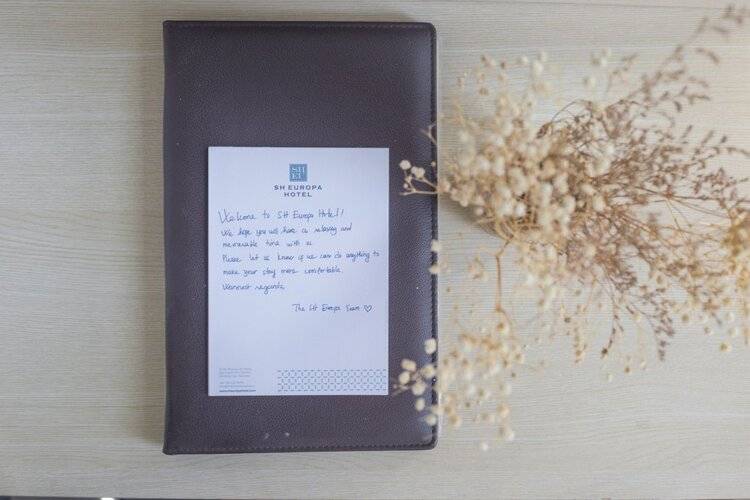 SH
EU
SH EUROPA
HOTEL
Welcome to SH Europa Hotel!
We hope you will have a relaxing and
memorable time with us
Please let us know if we can do anything to
make your stay more comfortable.
Warmest regards
The SH Europa Team